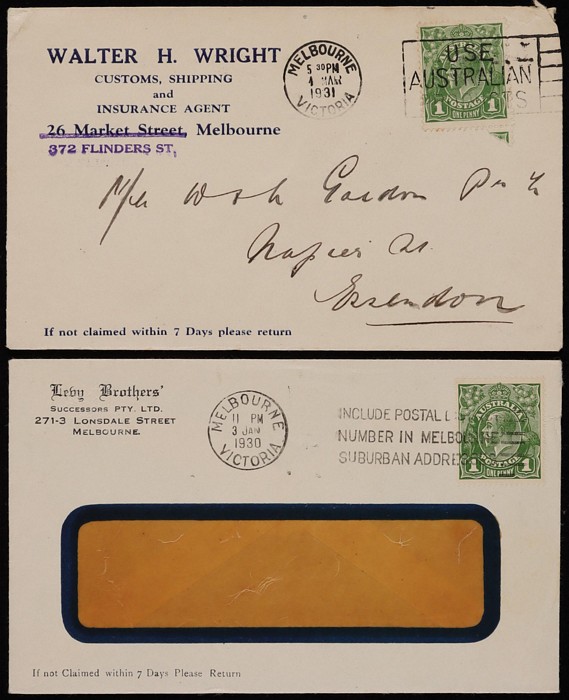 WALTER H. WRIGHT
CUSTOMS, SHIPPING
and
INSURANCE AGENT
26 Market Street, Melbourne
372 FLINDERS ST,
MELBOURNE
5 30 PM
1931
VICTORIA
USE
AUSTRALIAN
1 POSTAGE 1
ONE PENNY
Gordon
Napier St.
Essendon
If not claimed within 7 Days please return
Levy Brothers'
SUCCESSORS PTY. LTD.
271-3 LONSDALE STREET
MELBOURNE.
MELBOURNE
11 PM
3 JAN
1930
VICTORIA
INCLUDE POSTAL
NUMBER IN MELBOURNE
SUBURBAN ADDRE
AUSTRALIA
1 POSTAGE 1
ONE PENNY
If not Claimed within 7 Days Please Return